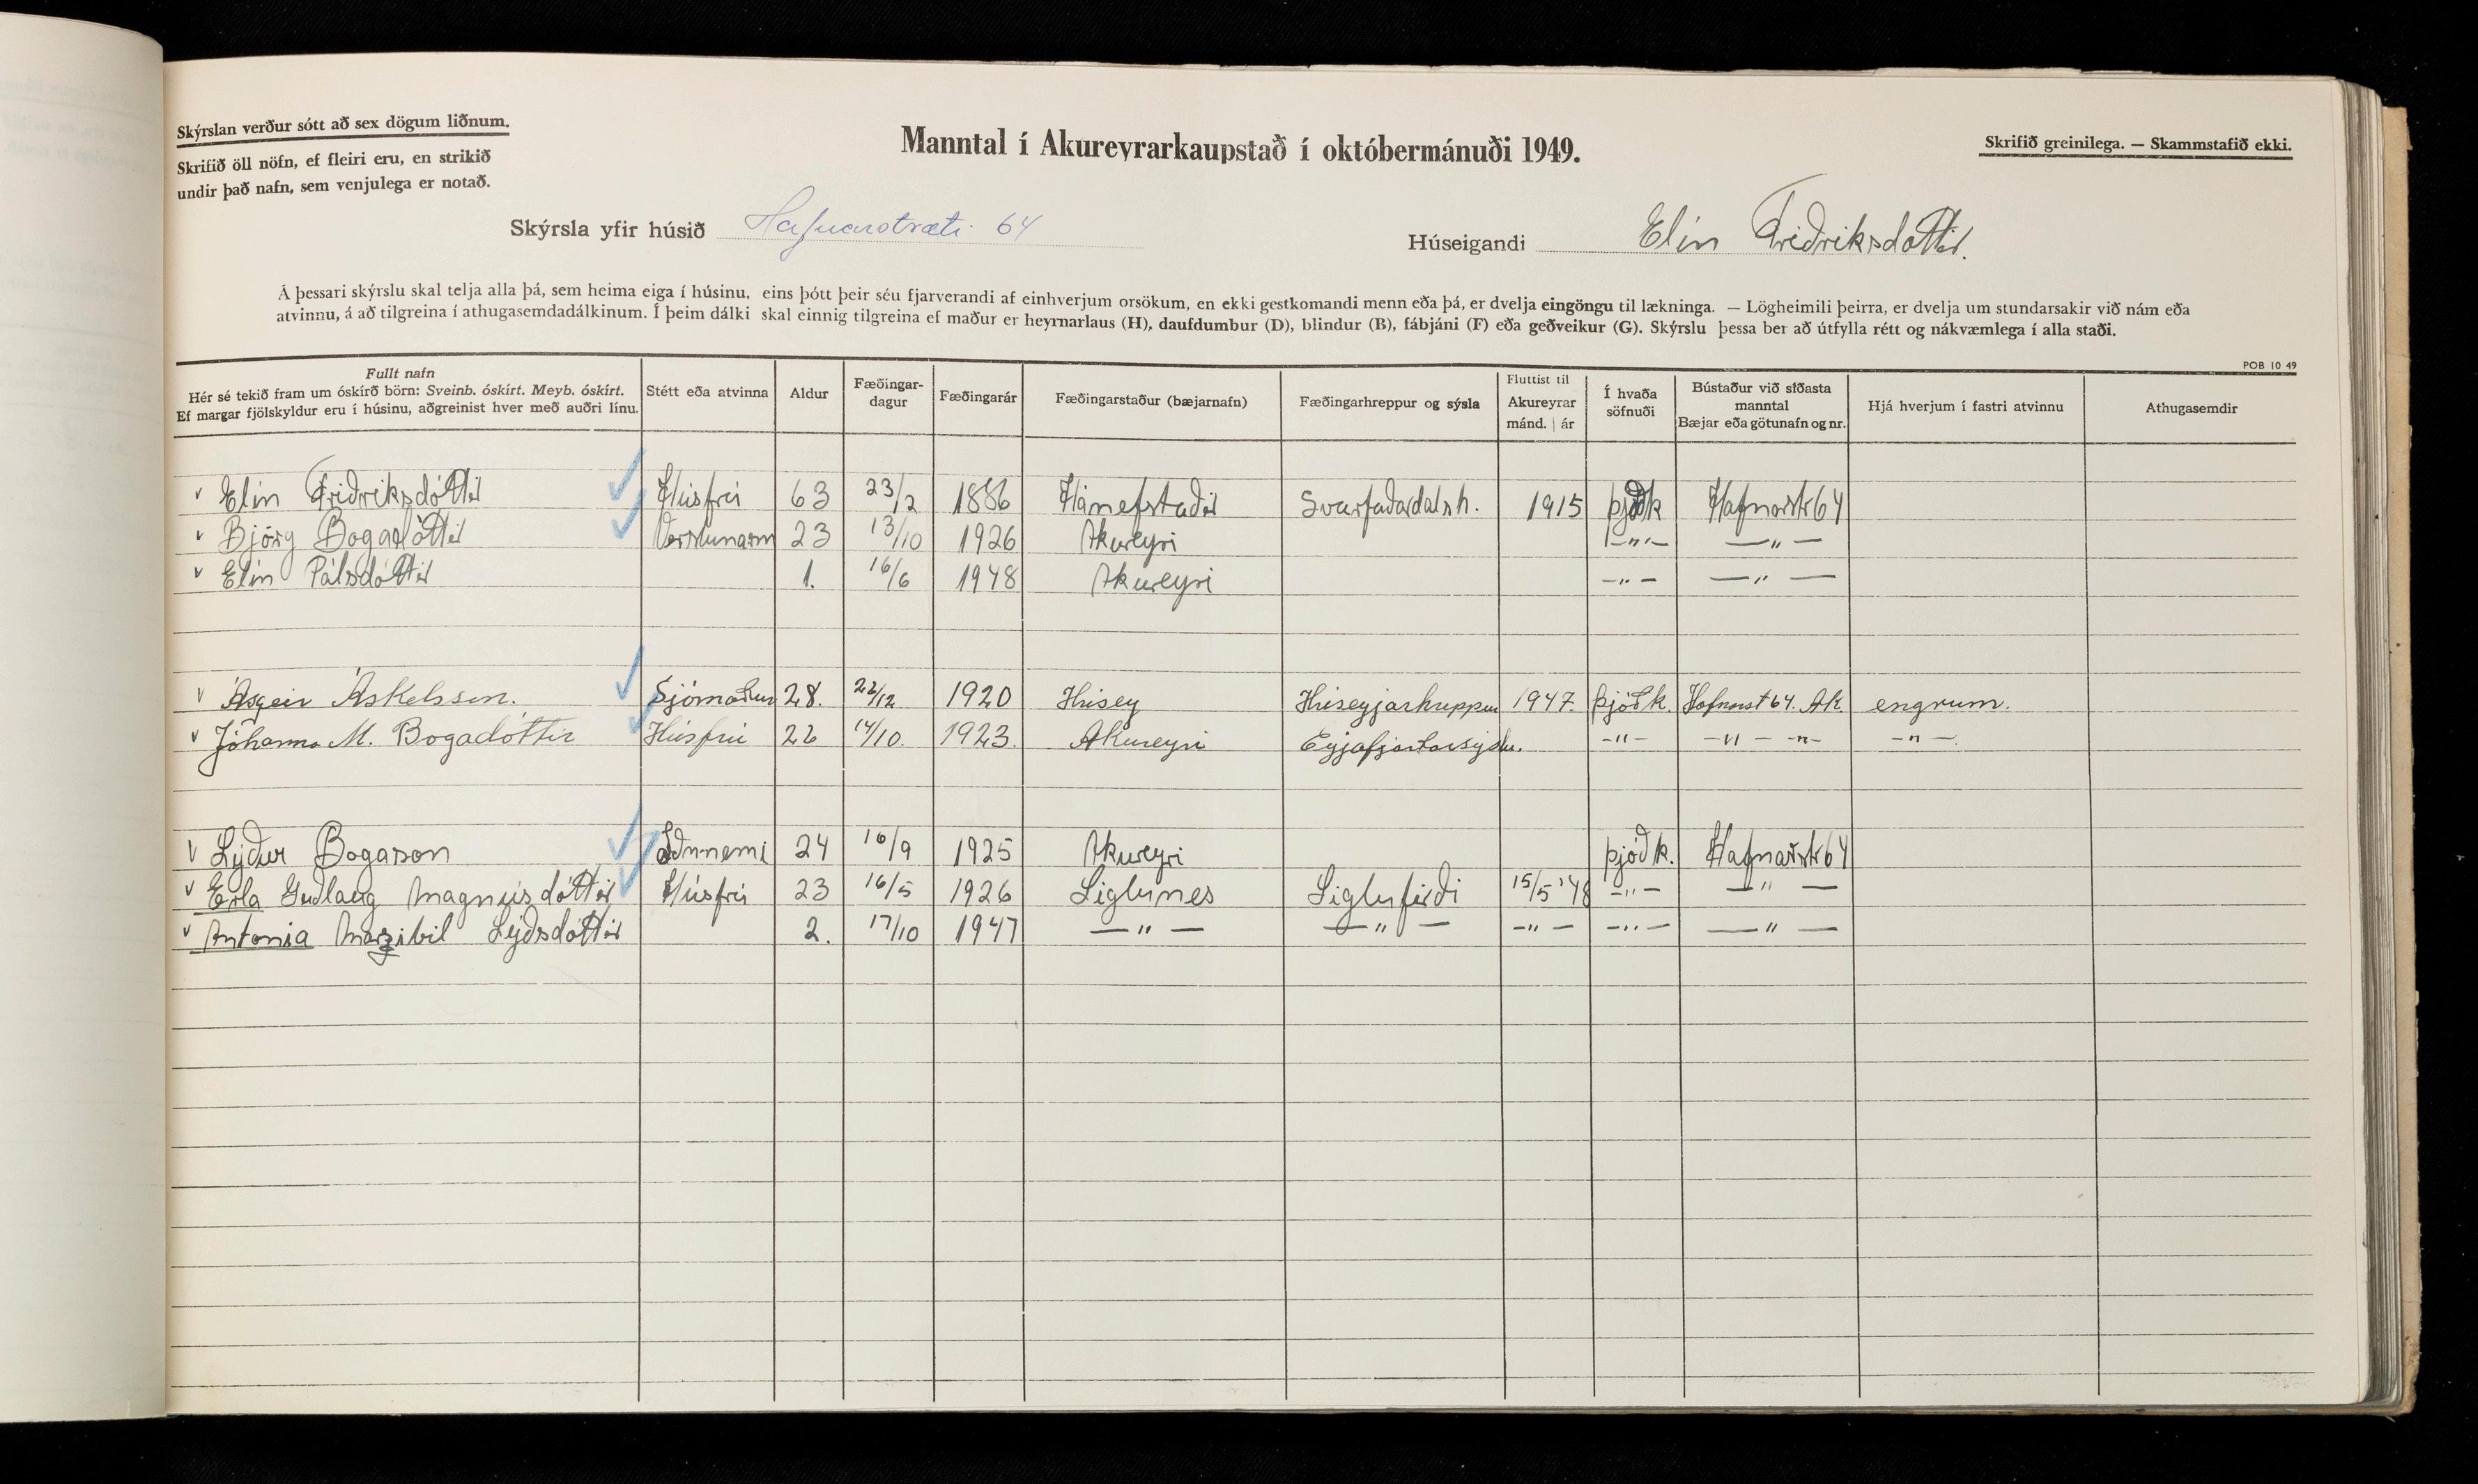 Skýrslan verður sótt að sex dögum liðnum.
Skrifið öll nöfn, ef fleiri eru, en strikið
undir það nafn, sem venjulega er notað.
Manntal í Akureyrarkaupstað í októbermánuði 1949.
Skrifið greinilega. — Skammstafið ekki.
Skýrsla yfir húsið Hafnarstræti 64
Húseigandi Elín Friðriksdóttir.
Á þessari skýrslu skal telja alla þá, sem heima eiga í húsinu, eins þótt þeir séu fjarverandi af einhverjum orsökum, en ekki gestkomandi menn eða þá, er dvelja eingöngu til lækninga. — Lögheimili þeirra, er dvelja um stundarsakir við nám eða
atvinnu, á að tilgreina í athugasemdadálkinum. Í þeim dálki skal einnig tilgreina ef maður er heyrnarlaus (H), daufdumbur (D), blindur (B), fábjáni (F) eða geðveikur (G). Skýrslu þessa ber að útfylla rétt og nákvæmlega í alla staði.
POB 10 49
Fullt nafn
Hér sé tekið fram um óskírð börn: Sveinb. óskírt. Meyb. óskírt.
Ef margar fjölskyldur eru í húsinu, aðgreinist hver með auðri línu.
Stétt eða atvinna
Aldur
Fæðingar-
dagur
Fæðingarár
Fæðingarstaður (bæjarnafn)
Fæðingarhreppur og sýsla
Fluttist til
Akureyrar
mánd. | ár
Í hvaða
söfnuði
Bústaður við síðasta
manntal
Bæjar eða götunafn og nr.
Hjá hverjum í fastri atvinnu
Athugasemdir
v Elín Friðriksdóttir Húsfrú 63 23/2 1886 Hánefstaðir Svarfaðardalsh. 1915 þjóðk Hafnarstr 64
v Björg Bogadóttir Verslunarm 23 13/10 1926 Akureyri —"— —"—
v Elín Pálsdóttir 1. 16/6 1948 Akureyri —"— —"—
v Ásgeir Áskelsson. Sjómaður 28. 22/12 1920 Hrísey Hríseyjarhreppur 1947. þjóðk. Hafnarst 64. Ak. engrum.
v Jóhanna M. Bogadóttir Húsfrú 26 14/10. 1923. Akureyri Eyjafjarðarsýslu. —"— —"— —"— —"—.
v Lýður Bogason Iðn-nemi 24 16/9 1925 Akureyri þjóðk. Hafnarstr 64
v Erla Guðlaug Magnúsdóttir Húsfrú 23 16/5 1926 Siglunes Siglufirði 15/5 '48 —"— —"—
v Antonia Marzibil Lýðsdóttir 2. 17/10 1947 —"— —"— —"— —"— —"—